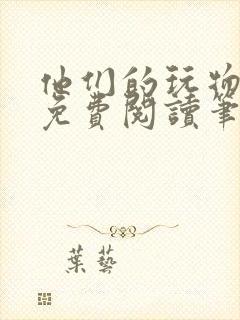 他们的玩物
免費閱讀筆
葉藝